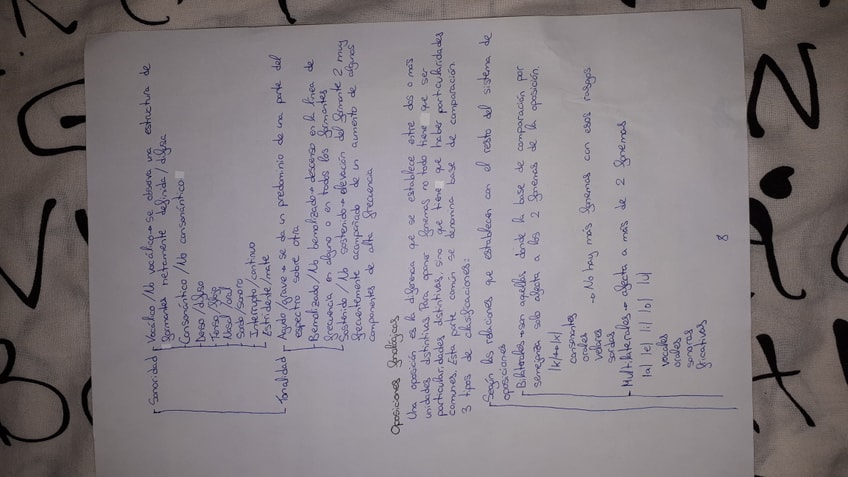 Sonoridad Vocálico/No vocálico → Se observa una estructura de
formantes netamente definida/difusa
Consonántico/No consonántico
Denso/difuso
Tenso/flojo
Nasal/oral
Sordo/sonoro
Interrupto/continuo
Estridente/mate
Tonalidad Agudo/grave → se da un predominio de una parte del
espectro sobre otra
Bemolizado/No bemolizado → descenso en la línea de
frecuencia en alguno o en todos los formantes
Sostenido/No sostenido → elevación del formante 2 muy
frecuentemente acompañado de un aumento de algunos
componentes de alta frecuencia
Oposiciones fonológicas
Una oposición es la diferencia que se establece entre dos o más
unidades distintivas. Para oponer fonemas no todo tiene que ser
particularidades distintivas, sino que tiene que haber particularidades
comunes. Esta parte común se denomina base de comparación
3 tipos de clasificaciones:
Según las relaciones que establecen con el resto del sistema de
oposiciones
Bilaterales → son aquella donde la base de comparación por
semejanza solo afecta a los 2 fonemas de la oposición.
/k/↔/x/
consonantes
orales
velares → No hay más fonemas con esos rasgos
sordas
Multilaterales → afecta a más de 2 fonemas
/a/ /e/ /i/ /o/ /u/
vocales
orales
sonoras
fricativas
8